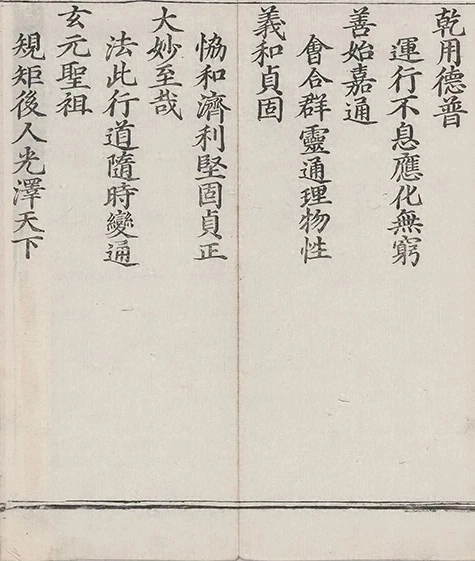 乾用德普
運行不息應化無窮
善始嘉通
會合群靈通理物性
義和貞固
恊和濟利堅固貞正
大妙至哉
法此行道隨時變通
玄元聖祖
規矩後人光澤天下